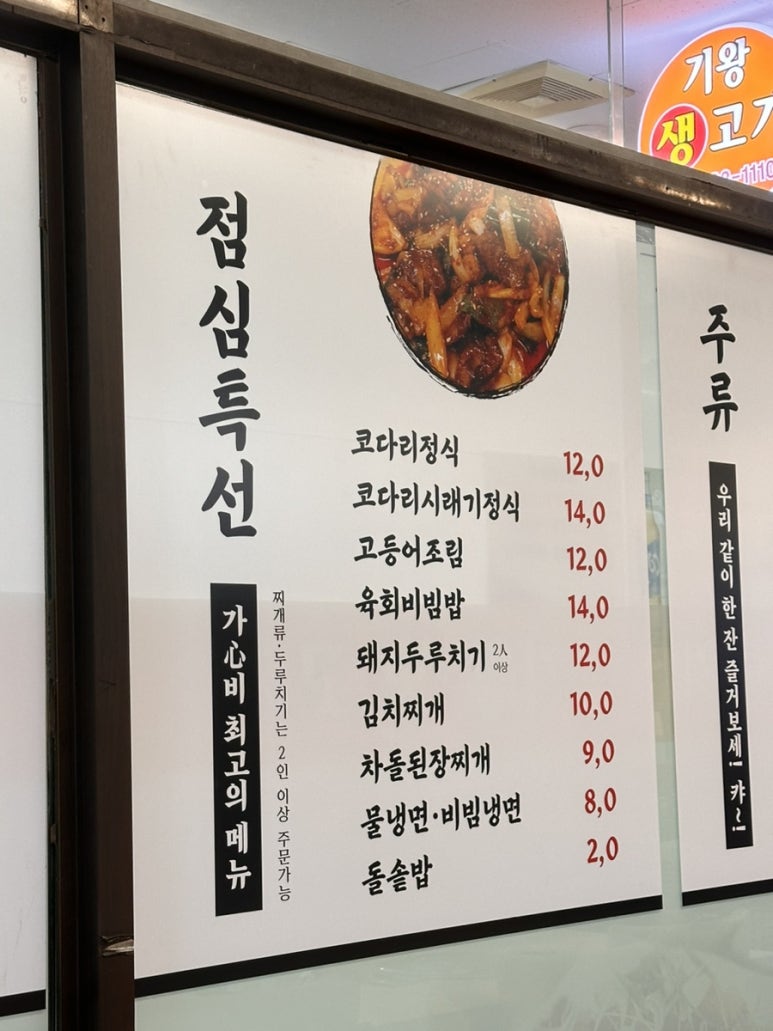 기왕
생고기
-1110
점심특선
가心비 최고의 메뉴
찌개류·두루치기는 2인 이상 주문가능
코다리정식 12,0
코다리시래기정식 14,0
고등어조림 12,0
육회비빔밥 14,0
돼지두루치기 2人 이상 12,0
김치찌개 10,0
차돌된장찌개 9,0
물냉면·비빔냉면 8,0
돌솥밥 2,0
주류
우리 같이 한 잔 즐겨보세! 캬~!